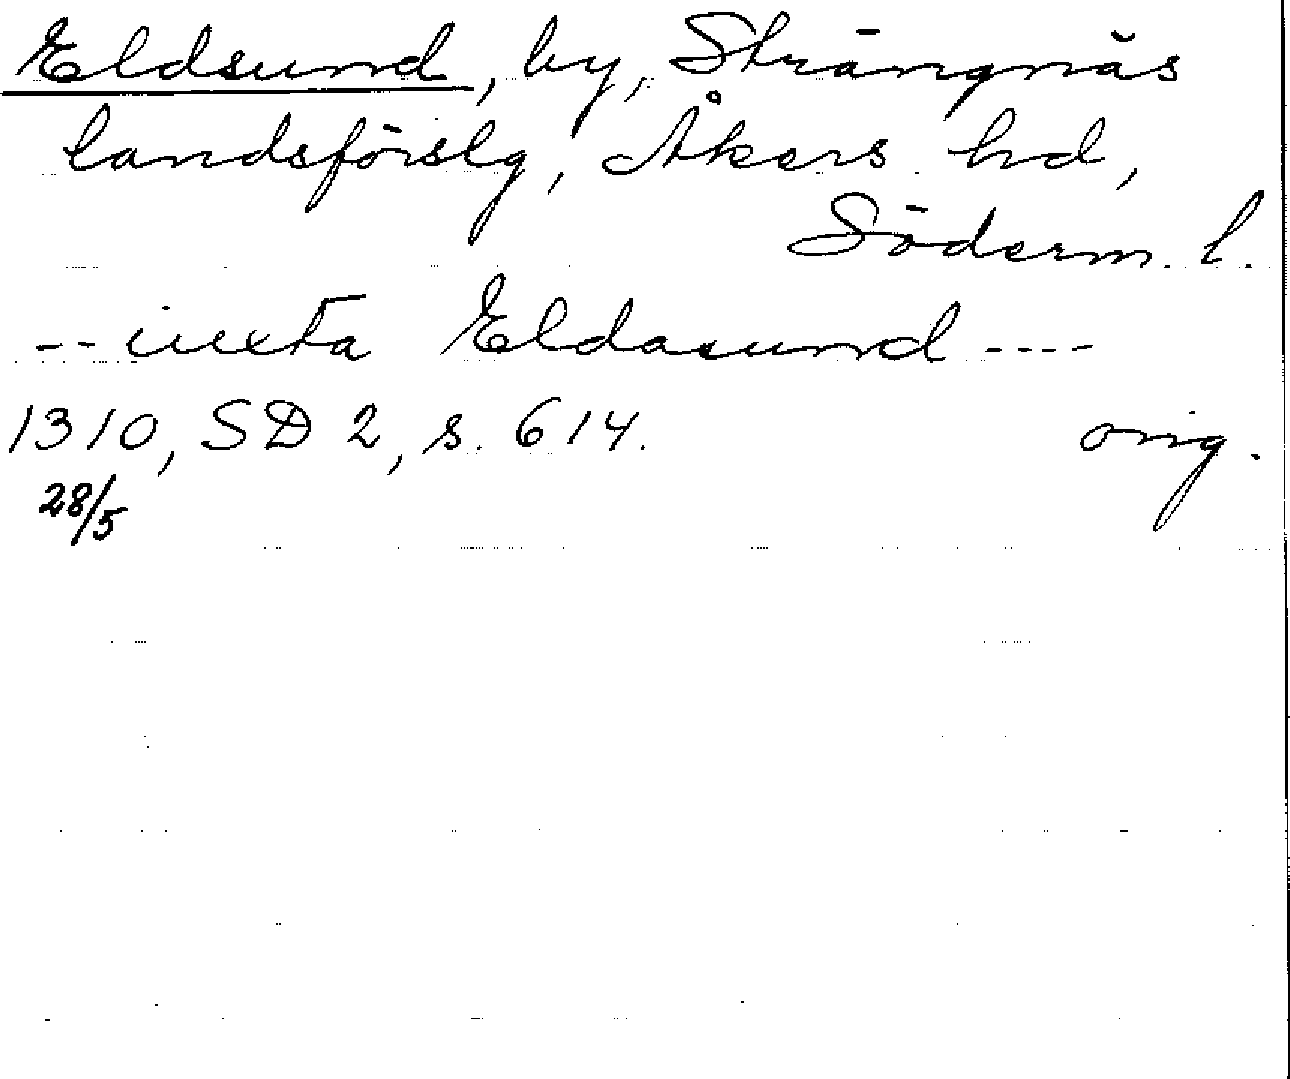 Eldsund, by, Strängnäs
landsförslg, Åkers hd,
Söderm. l.
-- iuxta Eldasund ----
1310, SD 2, s. 614. orig.
28/5